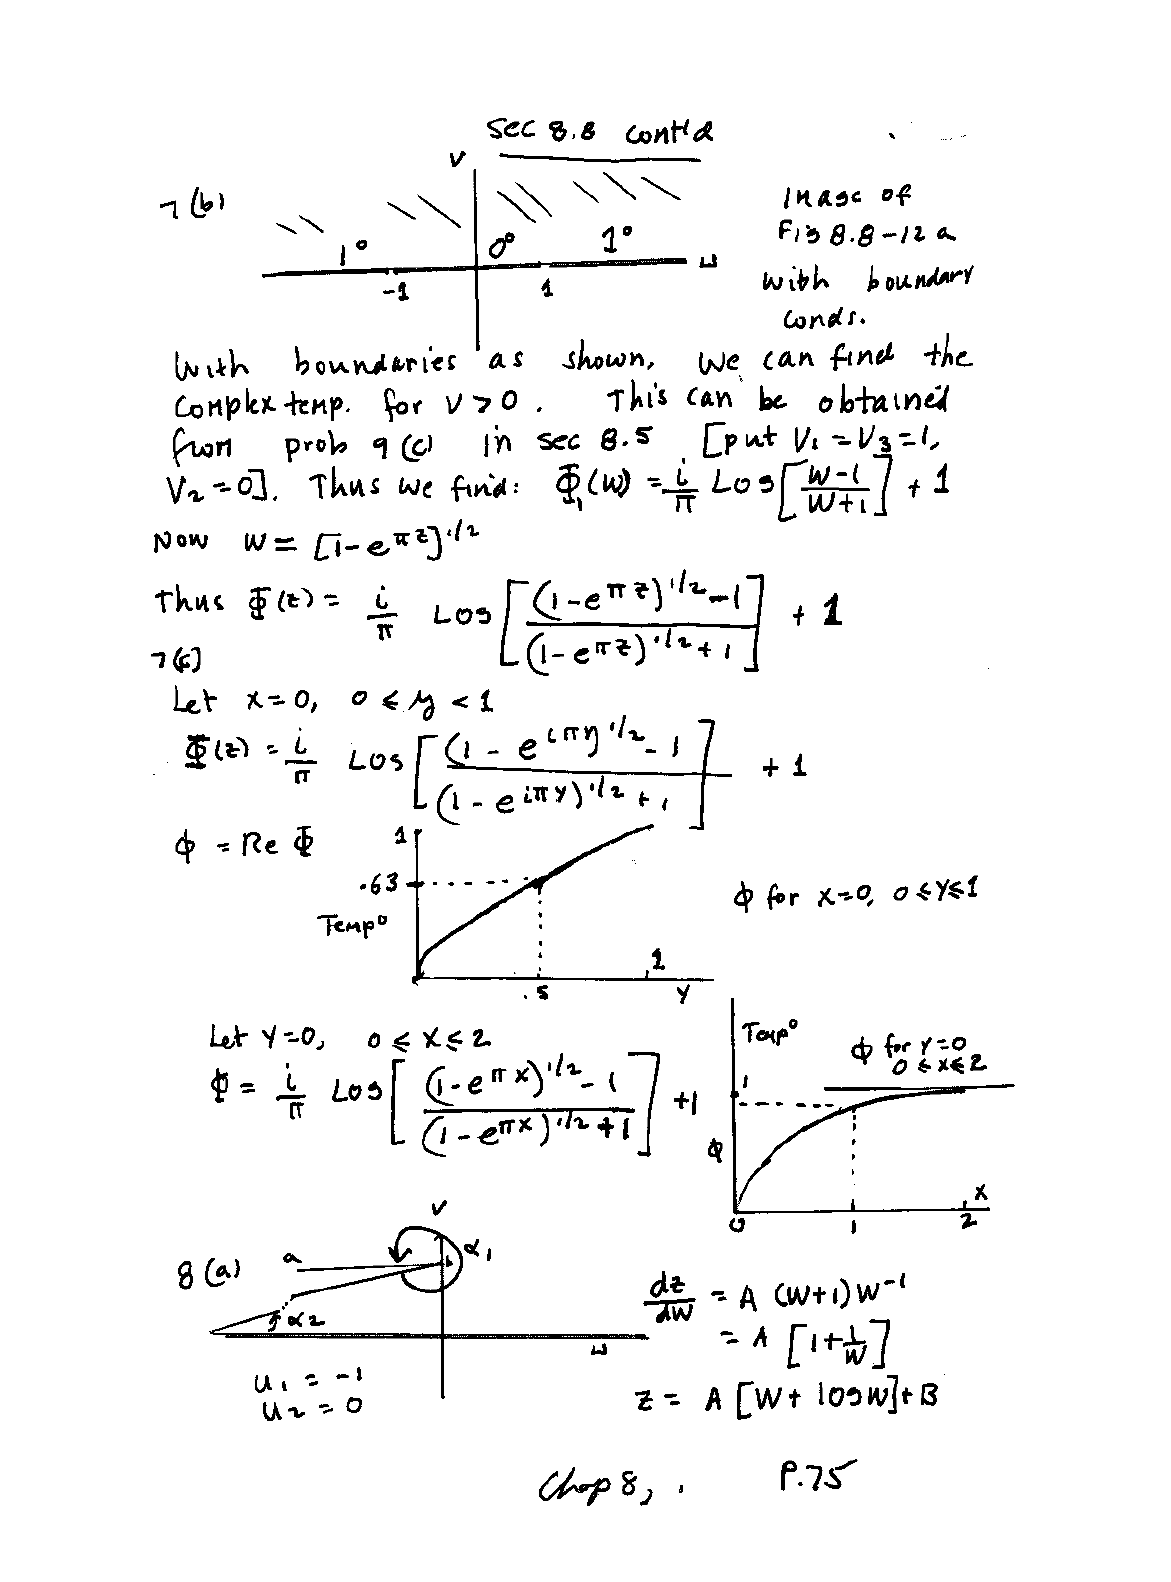 Sec 8.8 cont'd
V
7 (b)
1° 0° 1°
-1 1 u
Image of
Fig 8.8-12 a
with boundary
conds.
With boundaries as shown, we can find the
complex temp. for V > 0. This can be obtained
from prob 9 (c) in sec 8.5 [put V₁ = V₃ = 1,
V₂ = 0]. Thus we find: Φ₁(w) = i/π Log[(w-1)/(w+1)] + 1
Now w = [1-e^πz]^1/2
Thus Φ(z) = i/π Log[((1-e^πz)^1/2 - 1)/((1-e^πz)^1/2 + 1)] + 1
7(c)
Let x=0, 0 ≤ y < 1
Φ(z) = i/π Log[((1 - e^iπy)^1/2 - 1)/((1 - e^iπy)^1/2 + 1)] + 1
φ = Re Φ
1
.63
Temp°
.5 1
y
φ for x=0, 0≤y≤1
Let y=0, 0 ≤ x ≤ 2
φ = i/π Log[((1-e^πx)^1/2 - 1)/((1-e^πx)^1/2 + 1)] +1
Temp°
φ for y=0
0≤x≤2
1
φ
0 1 2
x
8 (a)
V
a b α₁
α₂
u
u₁ = -1
u₂ = 0
dz/dw = A (w+1) w^-1
= A [1+1/w]
z = A [w + log w] + B
Chap 8, P.75